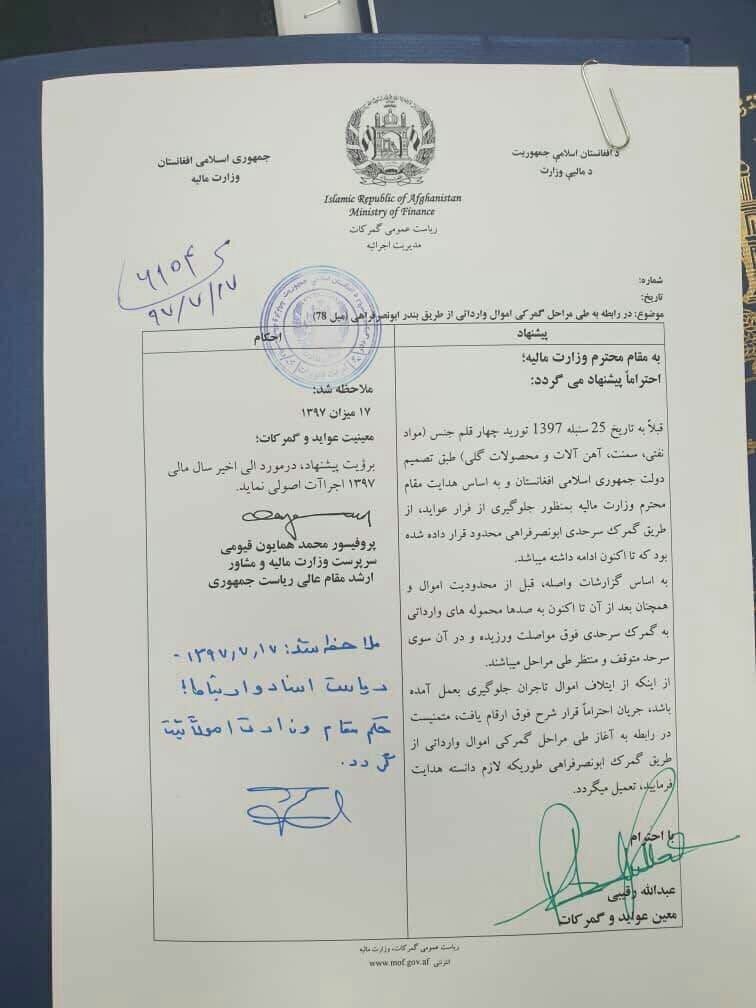 جمهوری اسلامی افغانستان
وزارت مالیه
د افغانستان اسلامي جمهوریت
د مالیې وزارت
Islamic Republic of Afghanistan
Ministry of Finance
ریاست عمومی گمرکات
مدیریت اجرائیه
۶۱۵۴
۹۷/۷/۱۷
شماره:
تاریخ:
موضوع: در رابطه به طی مراحل گمرکی اموال وارداتی از طریق بندر ابونصرفراهی (میل 78)
پیشنهاد
به مقام محترم وزارت مالیه؛
احتراماً پیشنهاد می گردد:
قبلاً به تاریخ 25 سنبله 1397 تورید چهار قلم جنس (مواد
نفتی، سمنت، آهن آلات و محصولات گلی) طبق تصمیم
دولت جمهوری اسلامی افغانستان و به اساس هدایت مقام
محترم وزارت مالیه بمنظور جلوگیری از فرار عواید، از
طریق گمرک سرحدی ابونصرفراهی محدود قرار داده شده
بود که تا اکنون ادامه داشته میباشد.
به اساس گزارشات واصله، قبل از محدودیت اموال و
همچنان بعد از آن تا اکنون به صدها محموله های وارداتی
به گمرک سرحدی فوق مواصلت ورزیده و در آن سوی
سرحد متوقف و منتظر طی مراحل میباشند.
از اینکه از ایتلاف اموال تاجران جلوگیری بعمل آمده
باشد، جریان احتراماً قرار شرح فوق ارقام یافت، متمنیست
در رابطه به آغاز طی مراحل گمرکی اموال وارداتی از
طریق گمرک ابونصرفراهی طوریکه لازم دانسته هدایت
فرمایید، تعمیل میگردد.
با احترام
عبدالله رقیبی
معین عواید و گمرکات
احکام
ملاحظه شد:
۱۷ میزان ۱۳۹۷
معینیت عواید و گمرکات؛
برؤیت پیشنهاد، درمورد الی اخیر سال مالی
۱۳۹۷ اجراآت اصولی نماید.
پروفیسور محمد همایون قیومی
سرپرست وزارت مالیه و مشاور
ارشد مقام عالی ریاست جمهوری
ملاحظه شد: ۱۳۹۷,۷,۱۷
ریاست اسناد و ارتباط!
حکم مقام وزارت اصولاً ثبت
گردد.
ریاست عمومی گمرکات، وزارت مالیه
www.mof.gov.af انترنتی